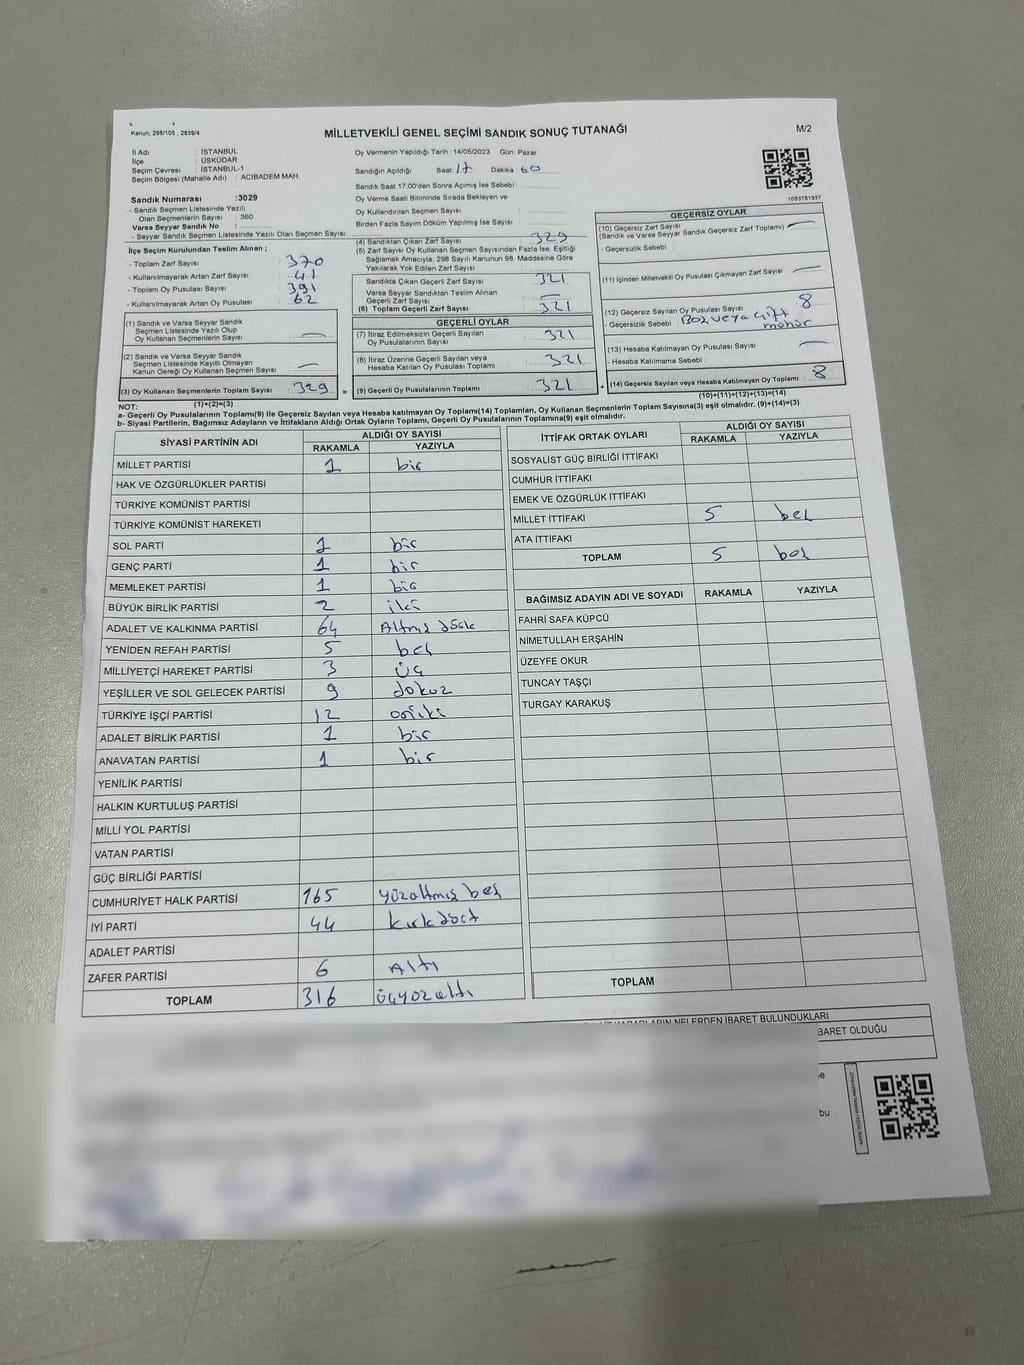 Kanun: 298/105 , 2839/4
MİLLETVEKİLİ GENEL SEÇİMİ SANDIK SONUÇ TUTANAĞI
M/2
İl Adı : İSTANBUL
İlçe : ÜSKÜDAR
Seçim Çevresi : İSTANBUL-1
Seçim Bölgesi (Mahalle Adı) : ACIBADEM MAH.
Oy Vermenin Yapıldığı Tarih : 14/05/2023 Gün: Pazar
Sandığın Açıldığı Saat : 17 Dakika : 60
Sandık Saat 17:00'den Sonra Açımış İse Sebebi :
Oy Verme Saati Bitiminde Sırada Bekleyen ve
Oy Kullandırılan Seçmen Sayısı :
Birden Fazla Sayım Döküm Yapılmış İse Sayısı :
1093781937
Sandık Numarası :3029
- Sandık Seçmen Listesinde Yazılı
Olan Seçmenlerin Sayısı : 360
Varsa Seyyar Sandık No :
- Seyyar Sandık Seçmen Listesinde Yazılı Olan Seçmen Sayısı:
İlçe Seçim Kurulundan Teslim Alınan ;
- Toplam Zarf Sayısı : 370
- Kullanılmayarak Artan Zarf Sayısı : 41
- Toplam Oy Pusulası Sayısı : 391
- Kullanılmayarak Artan Oy Pusulası : 62
(1) Sandık ve Varsa Seyyar Sandık
Seçmen Listesinde Yazılı Olup
Oy Kullanan Seçmenlerin Sayısı : —
(2) Sandık ve Varsa Seyyar Sandık
Seçmen Listesinde Kayıtlı Olmayan
Kanun Gereği Oy Kullanan Seçmen Sayısı : —
(3) Oy Kullanan Seçmenlerin Toplam Sayısı : 329 =
(1)+(2)=(3)
(4) Sandıktan Çıkan Zarf Sayısı : 329
(5) Zarf Sayısı Oy Kullanan Seçmen Sayısından Fazla İse, Eşitliği
Sağlamak Amacıyla, 298 Sayılı Kanunun 98. Maddesine Göre
Yakılarak Yok Edilen Zarf Sayısı :
Sandıkta Çıkan Geçerli Zarf Sayısı : 321
Varsa Seyyar Sandıktan Teslim Alınan
Geçerli Zarf Sayısı : —
(6) Toplam Geçerli Zarf Sayısı : 321
GEÇERLİ OYLAR
(7) İtiraz Edilmeksizin Geçerli Sayılan
Oy Pusulalarının Sayısı : 321
(8) İtiraz Üzerine Geçerli Sayılan veya
Hesaba Katılan Oy Pusulası Toplamı : 321
(9) Geçerli Oy Pusulalarının Toplamı : 321 +
GEÇERSİZ OYLAR
(10) Geçersiz Zarf Sayısı
(Sandık ve Varsa Seyyar Sandık Geçersiz Zarf Toplamı) : —
- Geçersizlik Sebebi :
(11) İçinden Milletvekili Oy Pusulası Çıkmayan Zarf Sayısı : —
(12) Geçersiz Sayılan Oy Pusulası Sayısı : 8
- Geçersizlik Sebebi : Boz veya çift
mühür
(13) Hesaba Katılmayan Oy Pusulası Sayısı : —
- Hesaba Katılmama Sebebi :
(14) Geçersiz Sayılan veya Hesaba Katılmayan Oy Toplamı : 8
(10)+(11)+(12)+(13)=(14)
NOT:
a- Geçerli Oy Pusulalarının Toplamı(9) ile Geçersiz Sayılan veya Hesaba katılmayan Oy Toplamı(14) Toplamları, Oy Kullanan Seçmenlerin Toplam Sayısına(3) eşit olmalıdır. (9)+(14)=(3)
b- Siyasi Partilerin, Bağımsız Adayların ve İttifakların Aldığı Ortak Oyların Toplamı, Geçerli Oy Pusulalarının Toplamına(9) eşit olmalıdır.
SİYASİ PARTİNİN ADI ALDIĞI OY SAYISI
RAKAMLA YAZIYLA
MİLLET PARTİSİ 1 bir
HAK VE ÖZGÜRLÜKLER PARTİSİ
TÜRKİYE KOMÜNİST PARTİSİ
TÜRKİYE KOMÜNİST HAREKETİ
SOL PARTİ 1 bir
GENÇ PARTİ 1 bir
MEMLEKET PARTİSİ 1 bir
BÜYÜK BİRLİK PARTİSİ 2 iki
ADALET VE KALKINMA PARTİSİ 64 Altmış dört
YENİDEN REFAH PARTİSİ 5 beş
MİLLİYETÇİ HAREKET PARTİSİ 3 üç
YEŞİLLER VE SOL GELECEK PARTİSİ 9 dokuz
TÜRKİYE İŞÇİ PARTİSİ 12 oniki
ADALET BİRLİK PARTİSİ 1 bir
ANAVATAN PARTİSİ 1 bir
YENİLİK PARTİSİ
HALKIN KURTULUŞ PARTİSİ
MİLLİ YOL PARTİSİ
VATAN PARTİSİ
GÜÇ BİRLİĞİ PARTİSİ
CUMHURİYET HALK PARTİSİ 165 yüzaltmış beş
İYİ PARTİ 44 kırkdört
ADALET PARTİSİ
ZAFER PARTİSİ 6 Altı
TOPLAM 316 üçyüzaltı
İTTİFAK ORTAK OYLARI ALDIĞI OY SAYISI
RAKAMLA YAZIYLA
SOSYALİST GÜÇ BİRLİĞİ İTTİFAKI
CUMHUR İTTİFAKI
EMEK VE ÖZGÜRLÜK İTTİFAKI
MİLLET İTTİFAKI 5 beş
ATA İTTİFAKI
TOPLAM 5 beş
BAĞIMSIZ ADAYIN ADI VE SOYADI RAKAMLA YAZIYLA
FAHRİ SAFA KÜPCÜ
NİMETULLAH ERŞAHİN
ÜZEYFE OKUR
TUNCAY TAŞÇI
TURGAY KARAKUŞ
TOPLAM
KARARLARIN NELERDEN İBARET BULUNDUKLARI
BARET OLDUĞU
bu